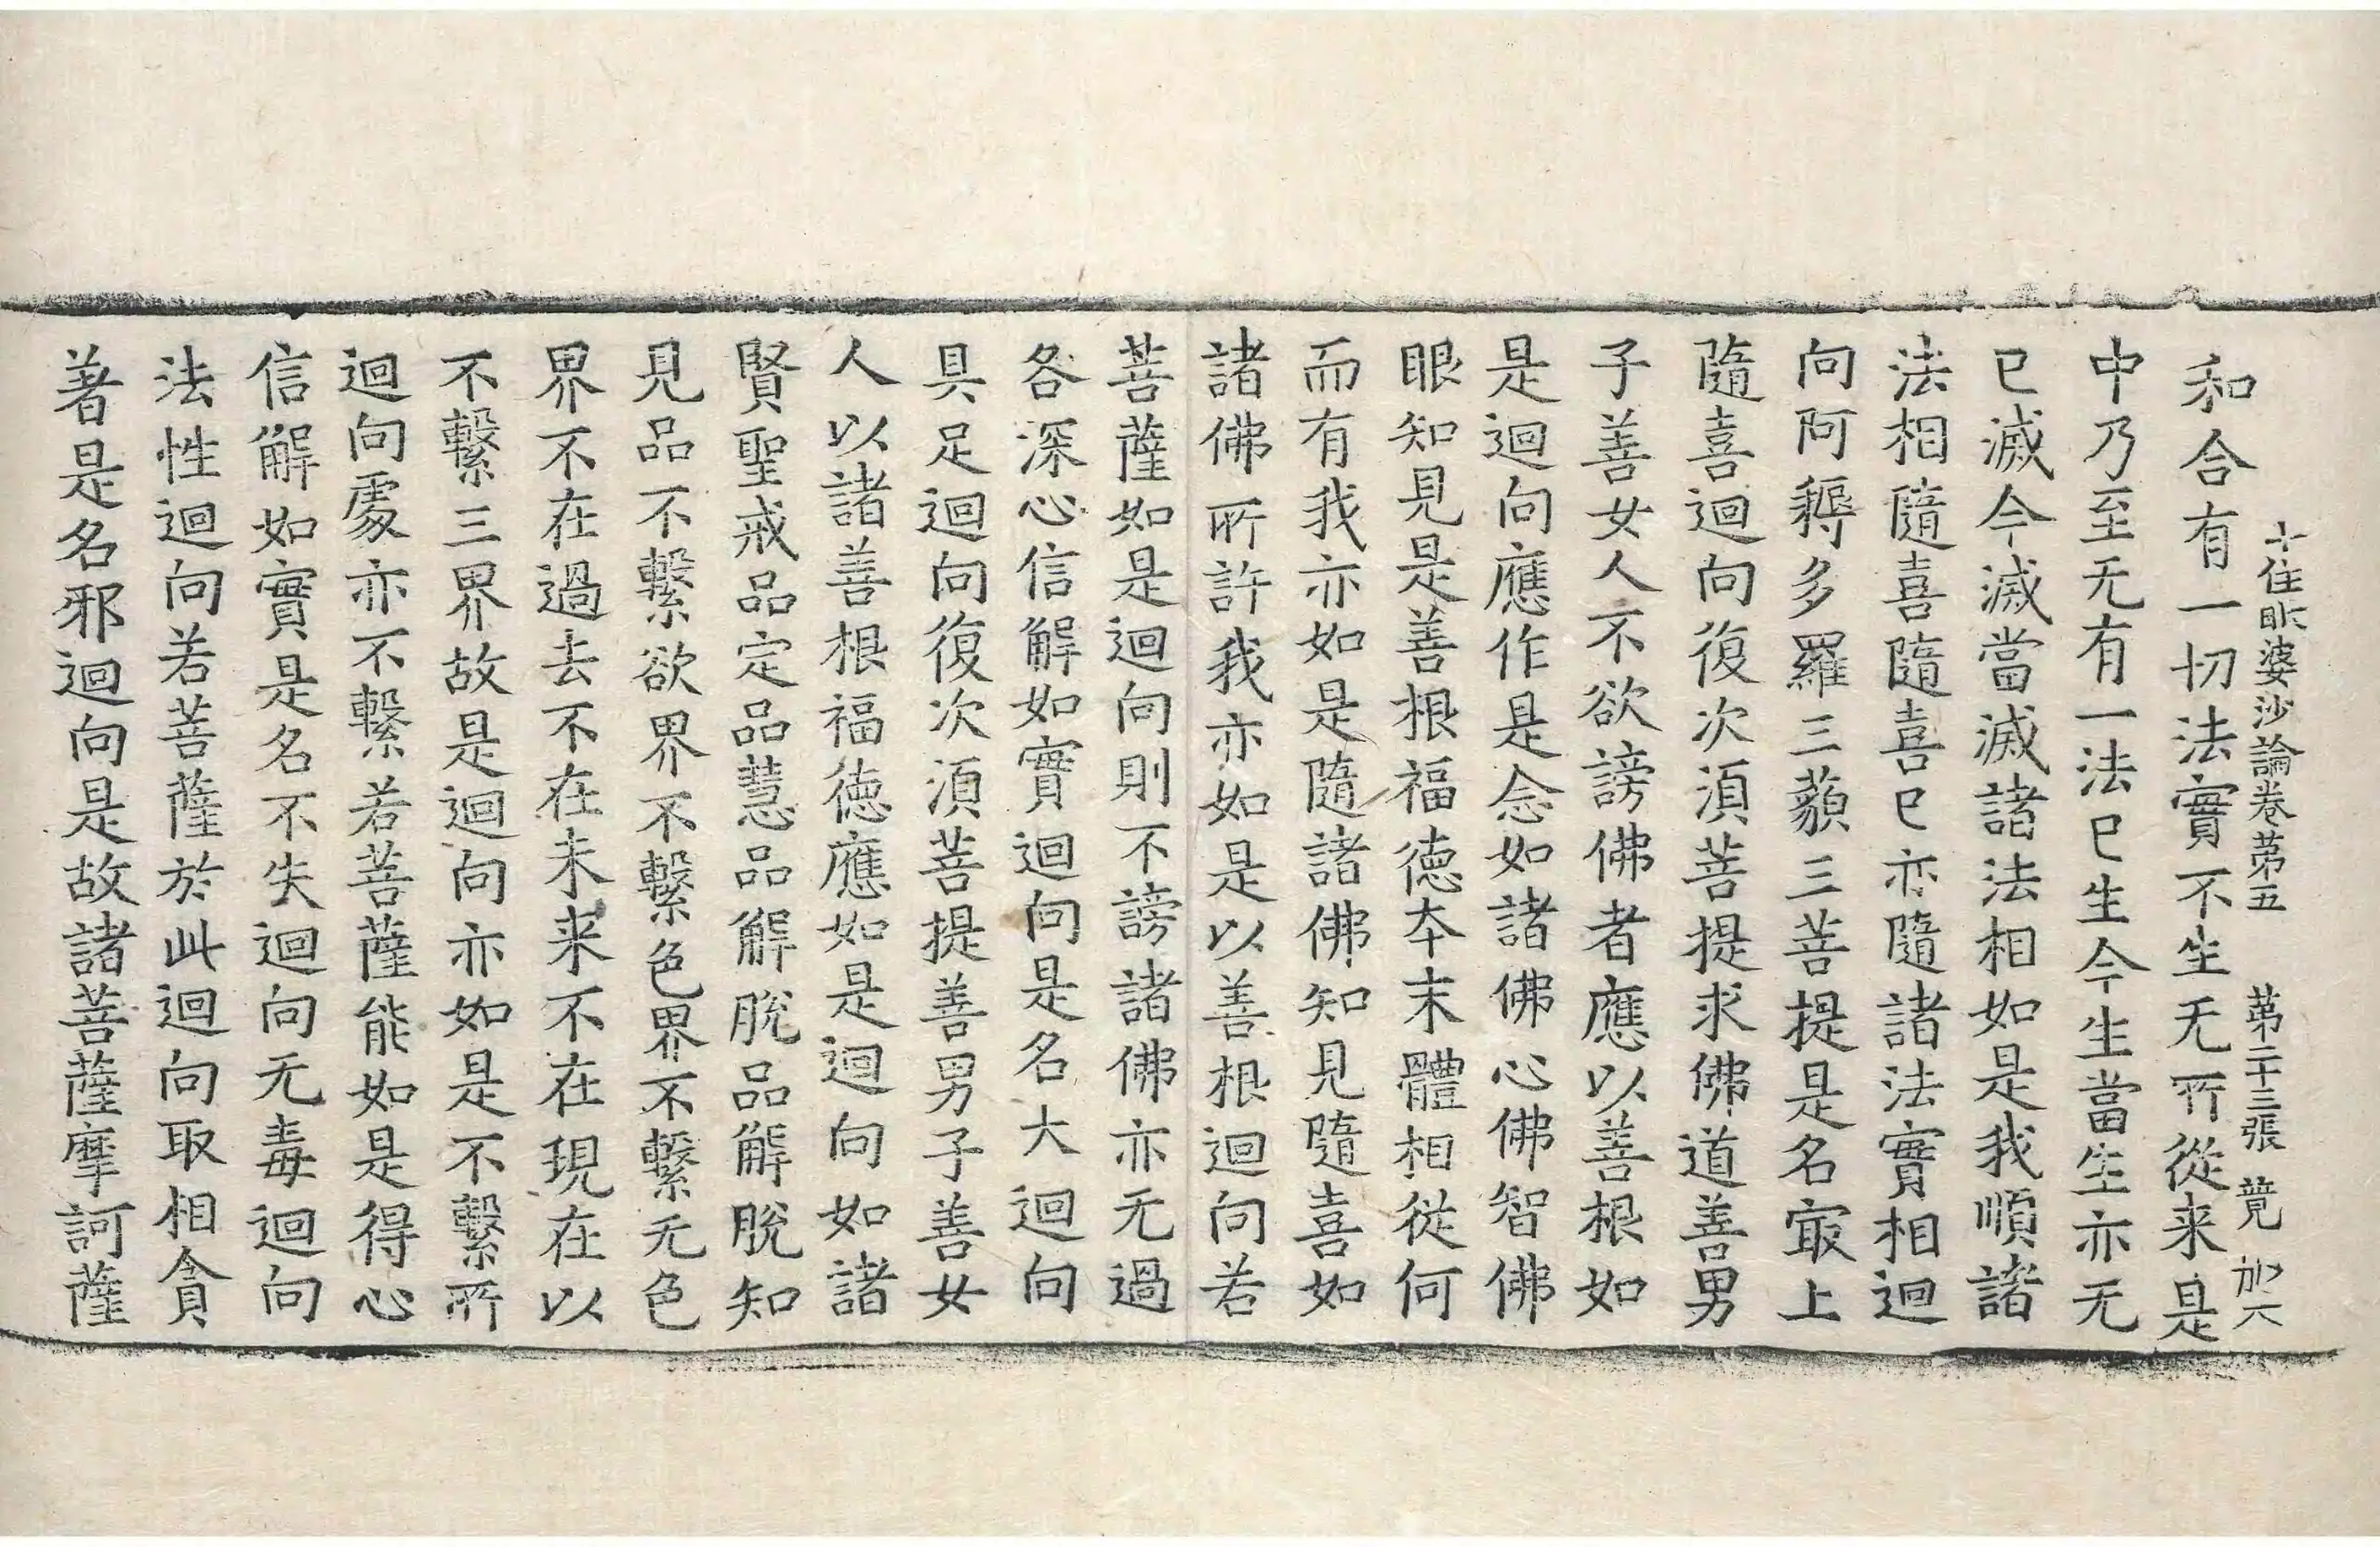 十住毗婆沙論卷苐五　苐二十三張　竟　加六
和合有一切法實不生无所從来是
中乃至无有一法已生今生當生亦无
已滅今滅當滅諸法相如是我順諸
法相隨喜隨喜已亦隨諸法實相迴
向阿耨多羅三藐三菩提是名㝡上
隨喜迴向復次湏菩提求佛道善男
子善女人不欲謗佛者應以善根如
是迴向應作是念如諸佛心佛智佛
眼知見是善根福德夲末體相從何
而有我亦如是隨諸佛知見隨喜如
諸佛所許我亦如是以善根迴向若
菩薩如是迴向則不謗諸佛亦无過
各深心信解如實迴向是名大迴向
具足迴向復次湏菩提善男子善女
人以諸善根福德應如是迴向如諸
賢聖戒品定品慧品解脫品解脫知
見品不繫欲界不繫色界不繫无色
界不在過去不在未来不在現在以
不繫三界故是迴向亦如是不繫所
迴向處亦不繫若菩薩能如是得心
信解如實是名不失迴向无毒迴向
法性迴向若菩薩於此迴向取相貪
著是名邪迴向是故諸菩薩摩訶薩